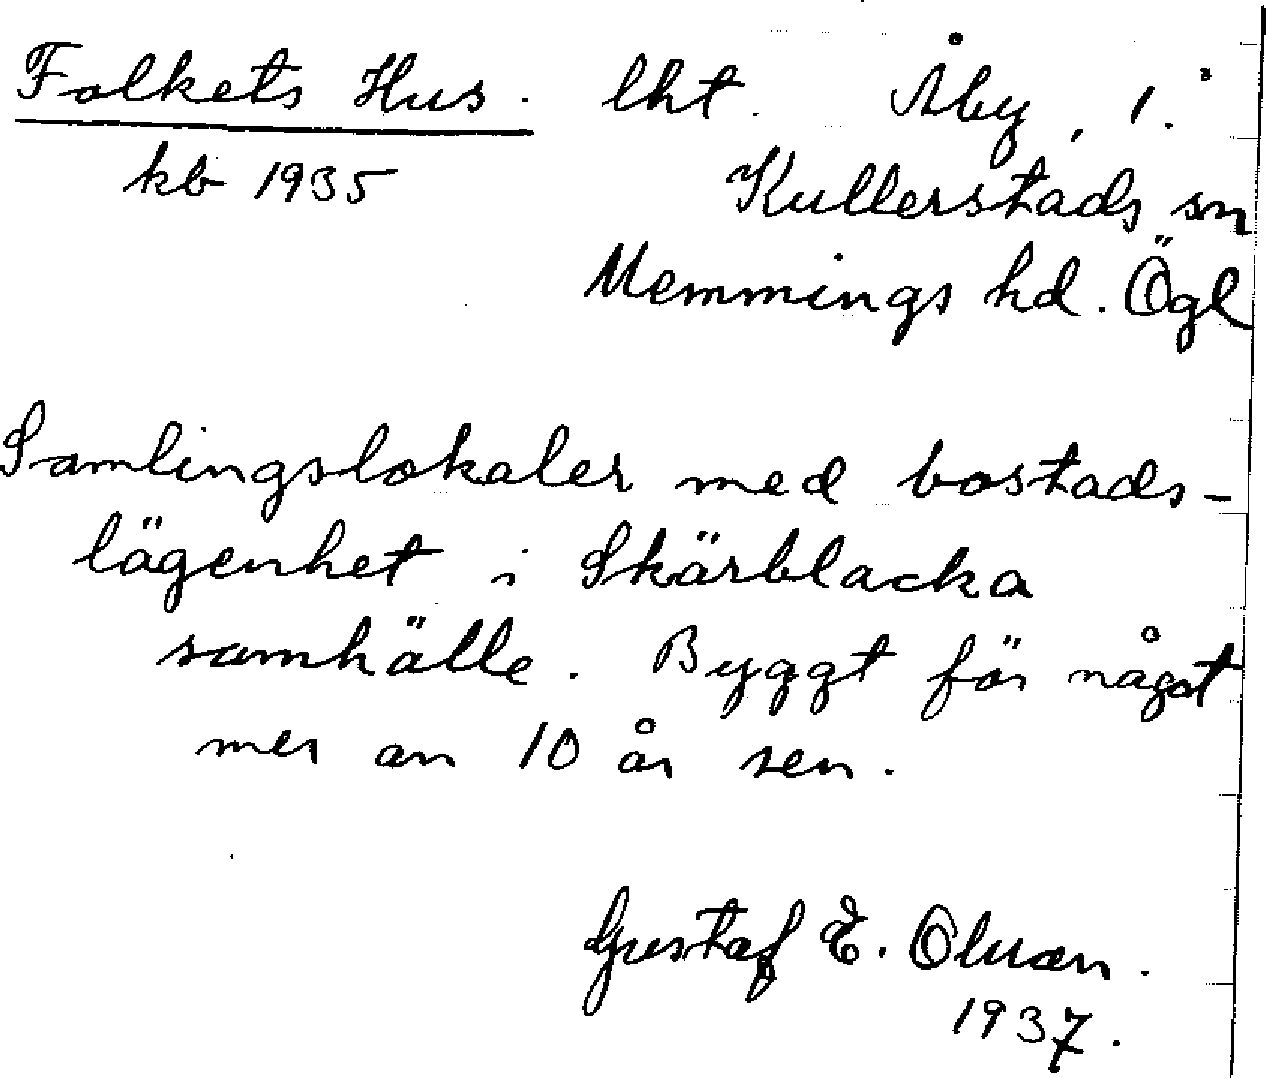 Folkets Hus. lht. Åby, 1.
kb 1935 Kullerstads sn
Memmings hd. Ögl
Samlingslokaler med bostads-
lägenhet i Skärblacka
samhälle. Byggt för något
mer an 10 år sen.
Gustaf E. Oluan.
1937.